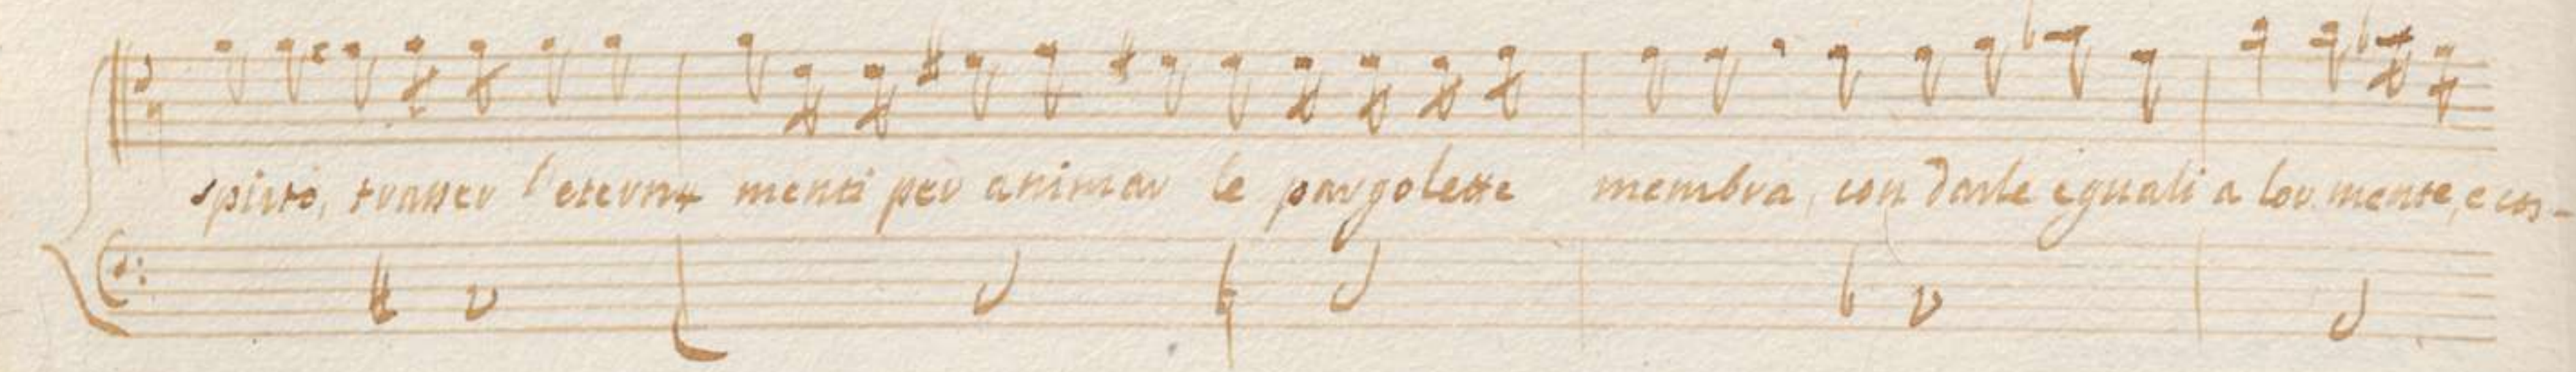 spirto, trasser l'eterne menti per animar le pargolette membra, con darle eguali a lor mente, e cos-